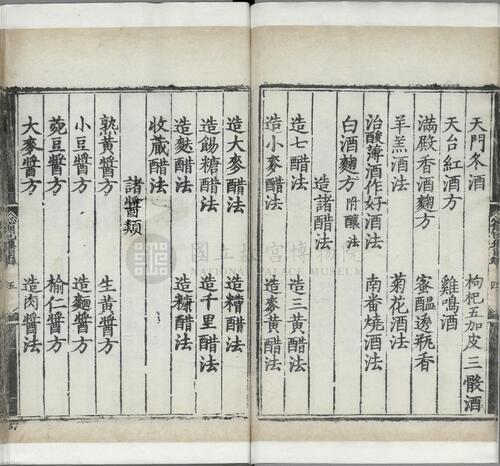 天門冬酒　枸杞五加皮三骰酒
天台紅酒方　雞鳴酒
滿殿香酒麴方　蜜醞透瓶香
羊羔酒法　菊花酒法
治酸薄酒作好酒法　南畨燒酒法
白酒麴方附釀法
造諸醋法
造七醋法　造三黄醋法
造小麥醋法　造麥黄醋法
造大麥醋法　造糟醋法
造餳糖醋法　造千里醋法
造麩醋法　造糠醋法
收藏醋法
諸醬類
熟黄醬方　生黄醬方
小豆醬方　造麵醬方
豌豆醬方　榆仁醬方
大麥醬方　造肉醬法
五
四
國立故宮博物院